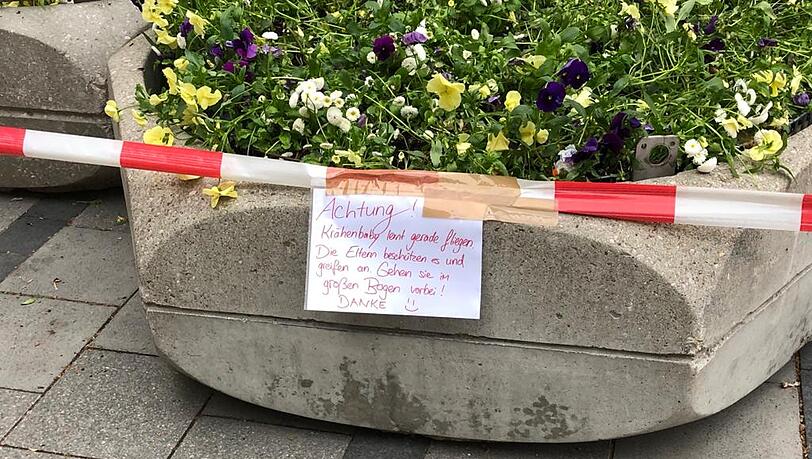 Achtung!
Krähenbaby lernt gerade fliegen
Die Eltern beschützen es und
greifen an. Gehen sie im
großen Bogen vorbei!
DANKE